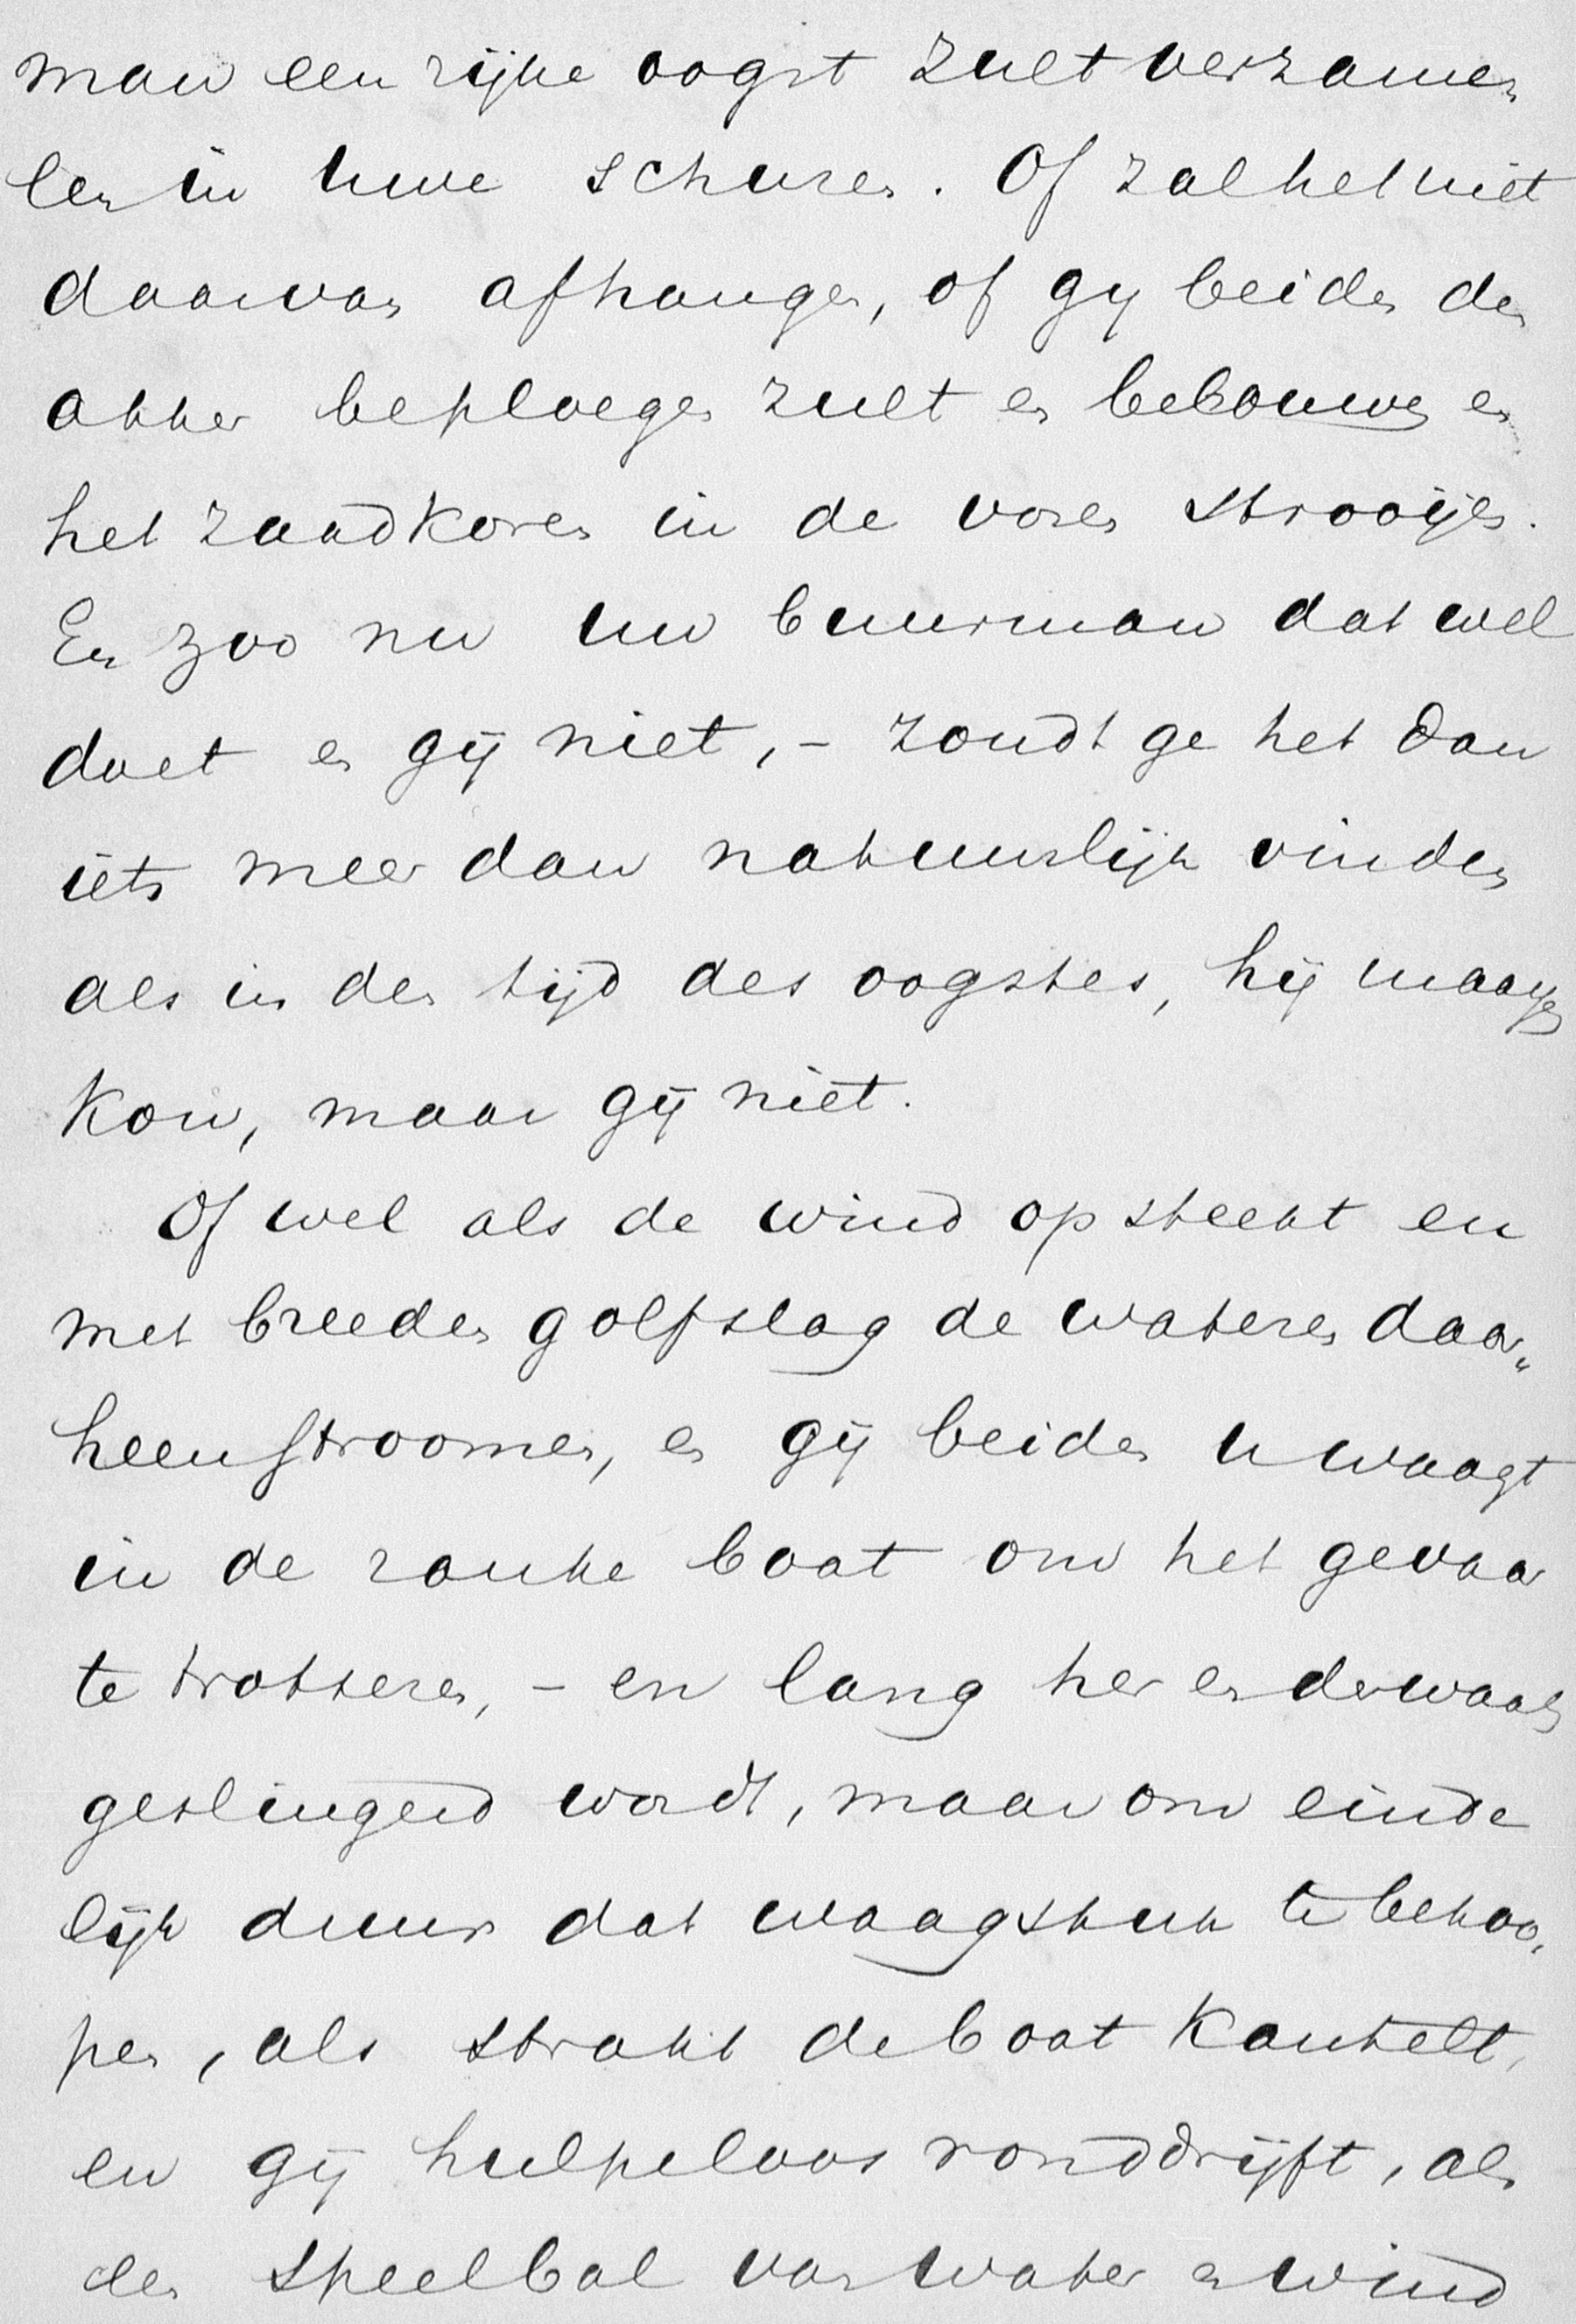 man een rijke oogst zult verzame-
len in uwe schuren. Of zal het niet
daarvan afhangen, of gy beiden den
akker beploegen zult en bebouwen en
het zaadkoren in de voren strooijen.
En zoo nu uw buurman dat wel
doet en gij niet, – zoudt ge het dan
iets meer dan natuurlijk vinden
als in den tijd des oogstes, hij maayen
kon, maar gij niet.
Of wel als de wind opsteekt en
met breeden golfslag de wateren daar„
heenstroomen, en gij beiden u waagt
in de ranke boot om het gevaar
te trotseren, – en lang her en derwaarts
geslingerd wordt, maar om einde
lijk duur dat waagstuk te bekoo„
pen, als straks de boot kantelt,
en gij hulpeloos ronddrijft, als
den speelbal van water en wind